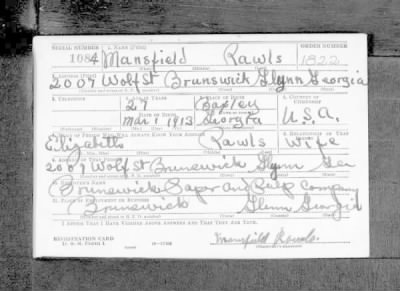 SERIAL NUMBER 1. NAME (Print) ORDER NUMBER
1084 Mansfield Rawls 1822
2007 Wolf St Brunswick Glynn Georgia
3. TELEPHONE 4. AGE IN YEARS 5. PLACE OF BIRTH 6. COUNTRY OF CITIZENSHIP
27 Baxley
DATE OF BIRTH
Mar 1 1913 Georgia U.S.A.
7. NAME OF PERSON WHO WILL ALWAYS KNOW YOUR ADDRESS 8. RELATIONSHIP OF THAT PERSON
Rawls Wife
9. ADDRESS OF THAT PERSON
2007 Wolf St Brunswick Glynn Ga
10. EMPLOYER'S NAME
Brunswick Paper and Pulp Company
11. PLACE OF EMPLOYMENT OR BUSINESS
Brunswick Glenn Georgia
I AFFIRM THAT I HAVE VERIFIED ABOVE ANSWERS AND THAT THEY ARE TRUE.
REGISTRATION CARD
D. S. S. FORM 1
Mansfield Rawls